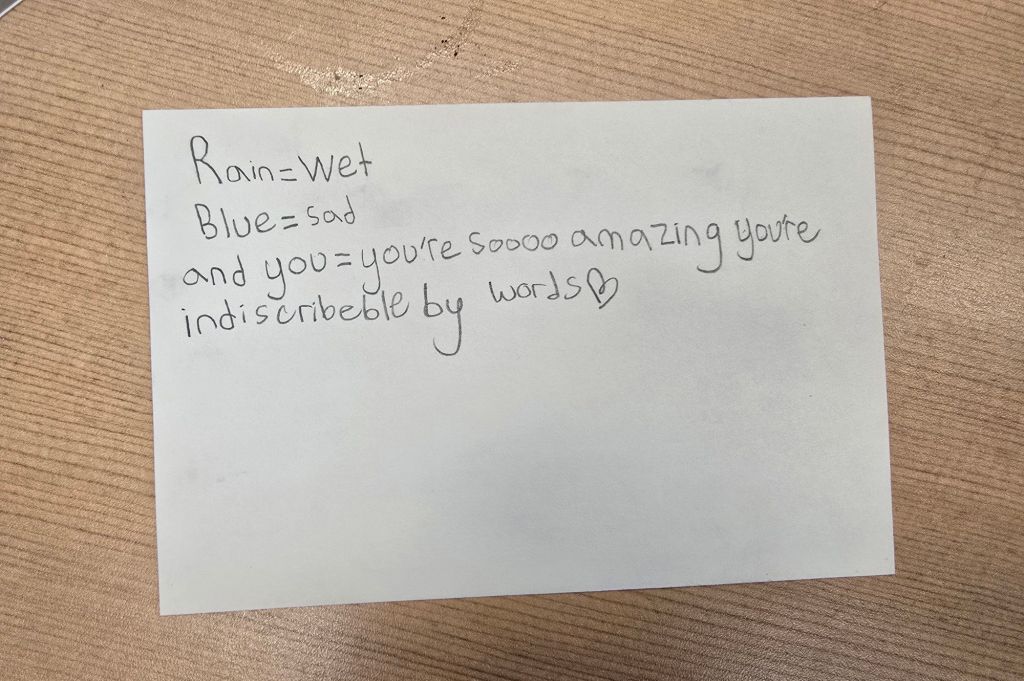 Rain=Wet
Blue=sad
and you=you're soooo amazing you're
indiscribeble by words♡